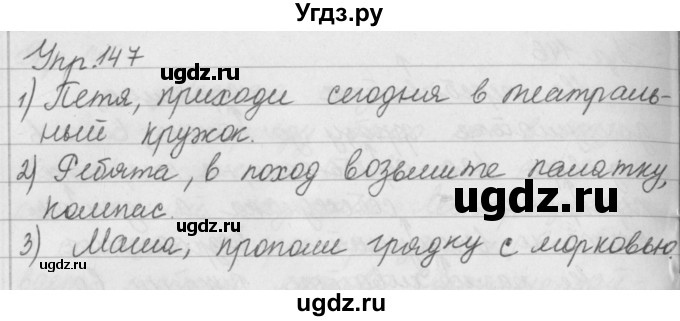 Угдз.ру
Упр.147
ugdz.ru
ugdz.ru
1) Петя, приходи сегодня в театраль-
ный кружок.
ugdz.ru
2) Ребята, в поход возьмите палатку,
ugdz.ru
компас.
3) Маша, прополи грядку с морковью.
ugdz.ru
ugdz.ru
ugdz.ru